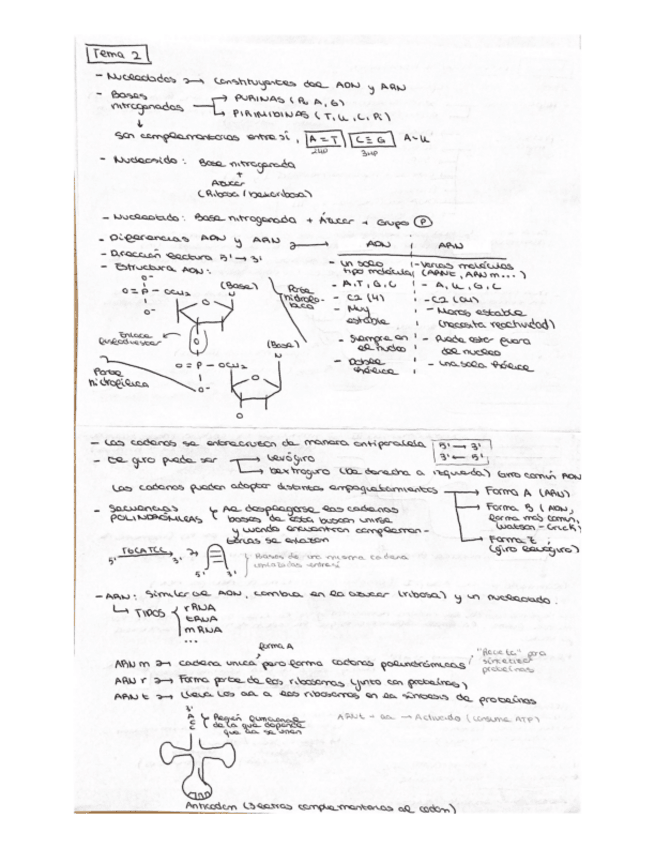 Tema 2
- Nucleótidos → Constituyentes del ADN y ARN
- Bases nitrogenadas → PURINAS (A, G)
→ PIRIMIDINAS (T, U, C)
↓
son complementarias entre sí, A = T C ≡ G A-U
- Nucleósido: Base nitrogenada
+
Azúcar
(Ribosa / Desoxirribosa)
- Nucleótido: Base nitrogenada + Azúcar + Grupo P
- Diferencias ADN y ARN → ADN ARN
- Dirección lectura 5' → 3'
- Estructura ADN:
- Un solo tipo molécula
- Varias moléculas (ARNt, ARNm...)
- A, T, G, C
- A, U, G, C
- C2 (H)
- C2 (OH)
- Muy estable
- Menos estable (necesita reactividad)
- Siempre en el núcleo
- Puede estar fuera del núcleo
- Doble hélice
- una sola hélice
O-
O = P - OCH2
O-
(Base)
N
O
Parte hidrofóbica
Enlace fosfodiéster
O
O = P - OCH2
O-
(Base)
N
O
O
Parte hidrofílica
- Las cadenas se entrecruzan de manera antiparalela 5' → 3'
3' ← 5'
- El giro puede ser → Levógiro
→ Dextrógiro (De derecha a izquierda) Giro común ADN
Las cadenas pueden adoptar distintos empaquetamientos → Forma A (ARN)
→ Forma B (ADN, forma más común, Watson-Crick)
→ Forma Z (giro levógiro)
- SECUENCIAS PALINDRÓMICAS
Al desplegarse las cadenas
bases de esta buscan unirse
y cuando encuentran complemen-
tarias se enlazan
5' 3' →
5' 3'
Bases de una misma cadena
unidas entre sí
- ARN: Similar al ADN, cambia en el azúcar (ribosa) y un nucleótido.
↳ TIPOS
rRNA
tRNA
mRNA
...
forma A
ARN m → cadena única, pero forma cadenas palindrómicas
"Receta" para
sintetizar
proteínas
ARN r → Forma parte de los ribosomas (junto con proteínas)
ARN t → Lleva los aa a los ribosomas en la síntesis de proteínas
3'
A
C
C
Región funcional
de la que depende
que aa se unen
ARNt - aa → Activado (consume ATP)
Anticodon (3 letras complementarias al codon)